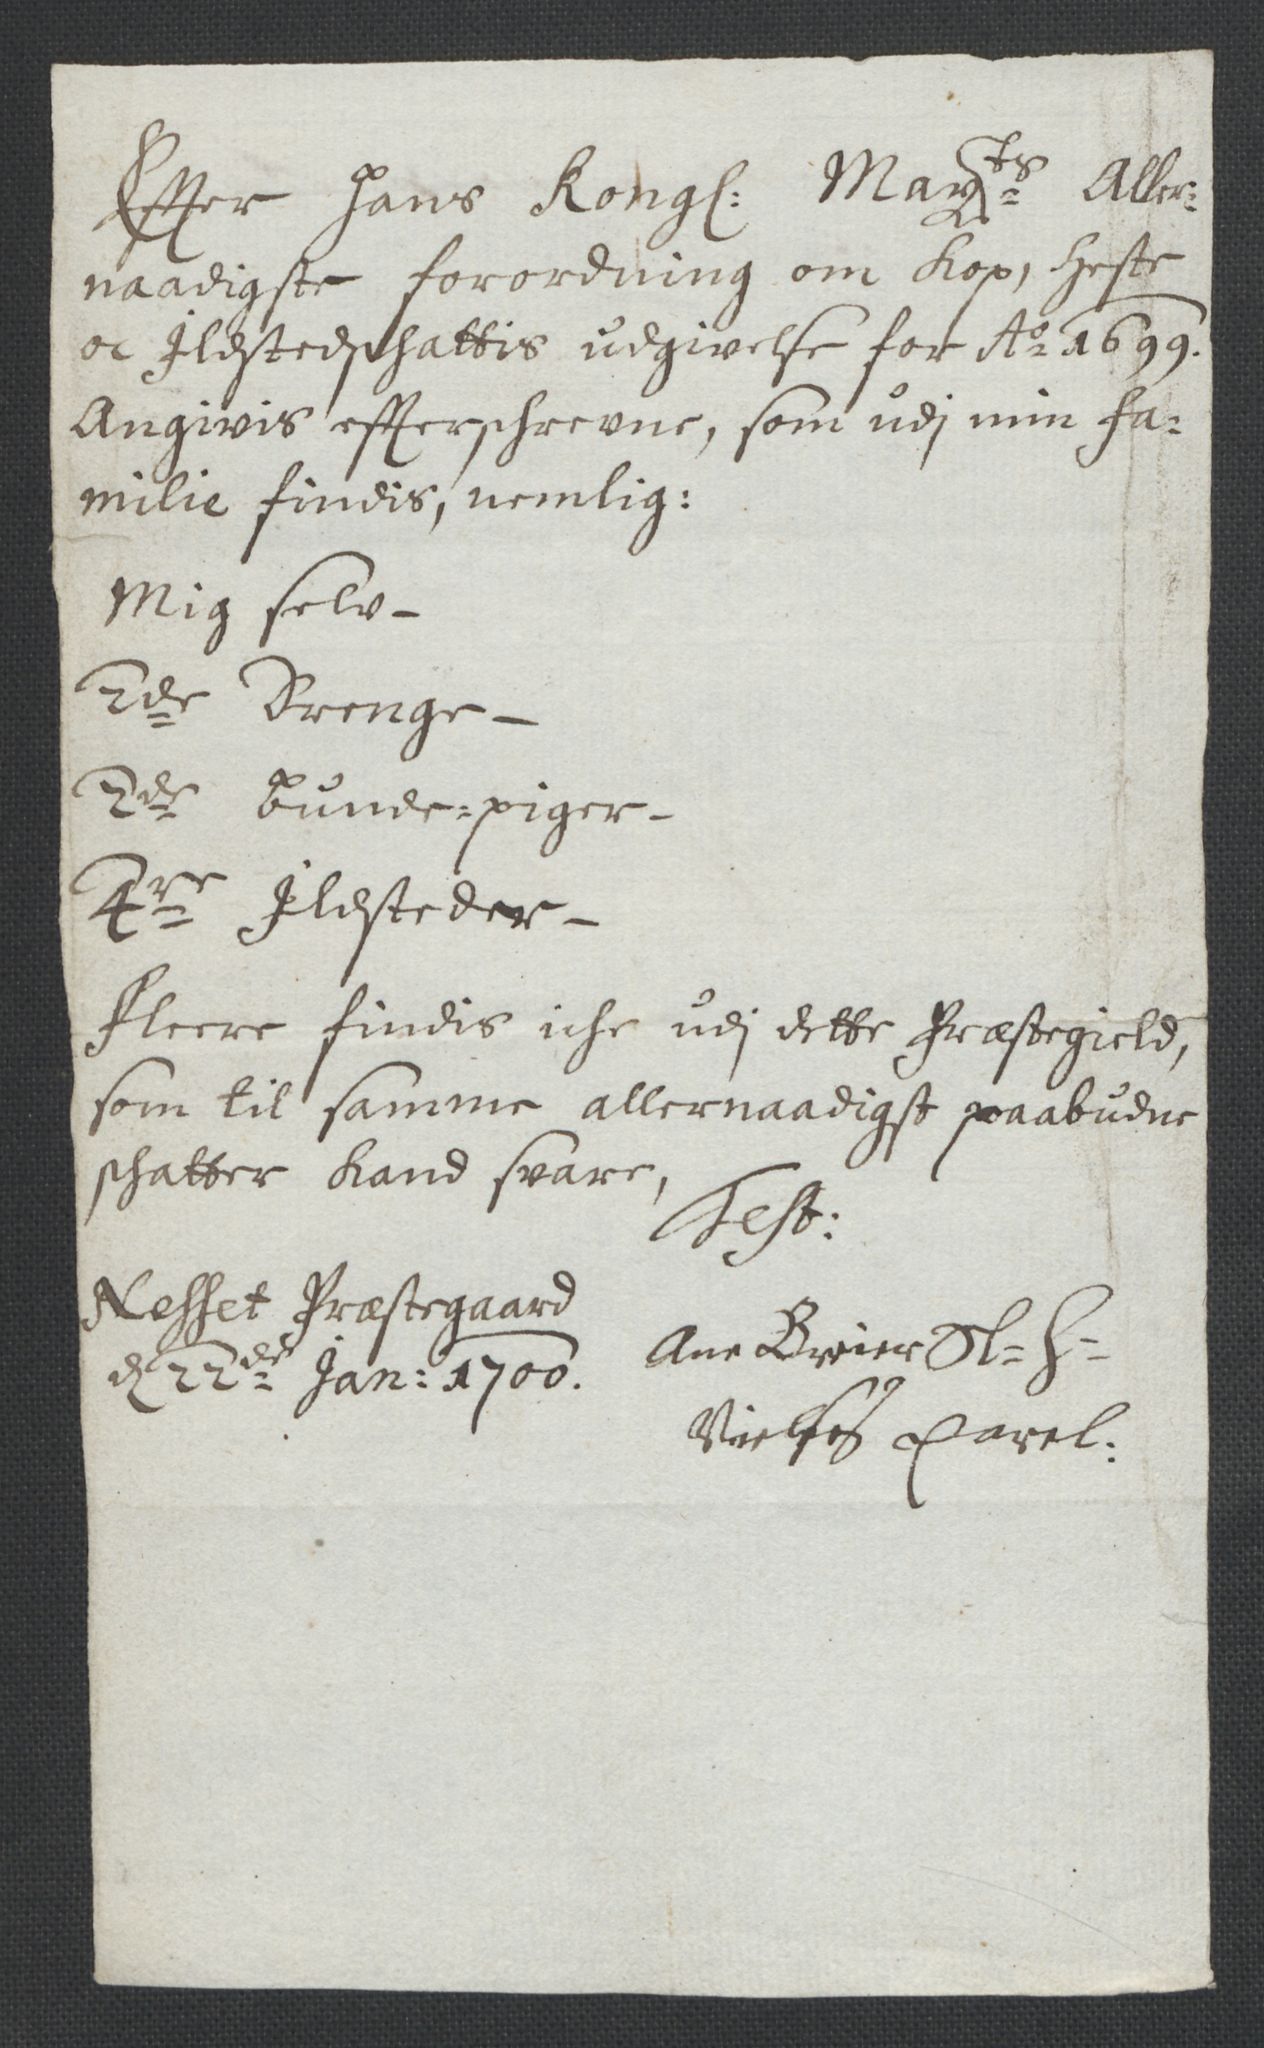 Effter Hans Kongl: May:ts Aller-
naadigste forordning om Kop, Heste
oc Ildstedschattis udgivelse for Ao 1699.
Angivis effterschrevne, som udj min fa-
milie findis, nemlig:
Mig selv-
2de Drenge-
2de bunde-piger-
4re Ildsteder-
Fleere findis iche udj dette Præstegield,
som til samme allernaadigst paabudne
schatter Kand svare,
Test:
Nesset Præstegaard
d 22de Jan: 1700.
Ane Sl- H-